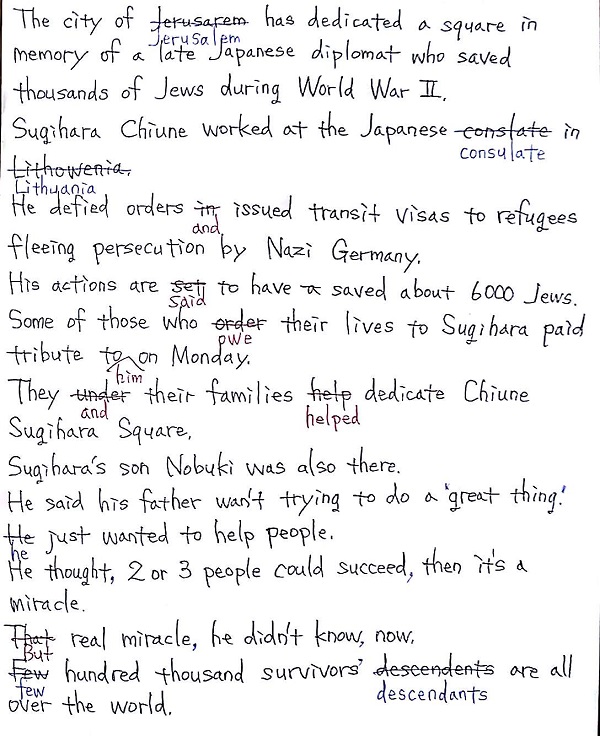 The city of Jerusarem has dedicated a square in
Jerusalem
memory of a late Japanese diplomat who saved
thousands of Jews during World War II.
Sugihara Chiune worked at the Japanese constate in
consulate
Lithowenia.
Lithuania
He defied orders in issued transit visas to refugees
and
fleeing persecution by Nazi Germany.
His actions are set to have a saved about 6000 Jews.
said
Some of those who order their lives to Sugihara paid
owe
tribute to on Monday.
him
They under their families help dedicate Chiune
and helped
Sugihara Square.
Sugihara's son Nobuki was also there.
He said his father wan't trying to do a 'great thing.'
He just wanted to help people.
he
He thought, 2 or 3 people could succeed, then it's a
miracle.
That real miracle, he didn't know, now,
But
Few hundred thousand survivors' descendents are all
few descendants
over the world.